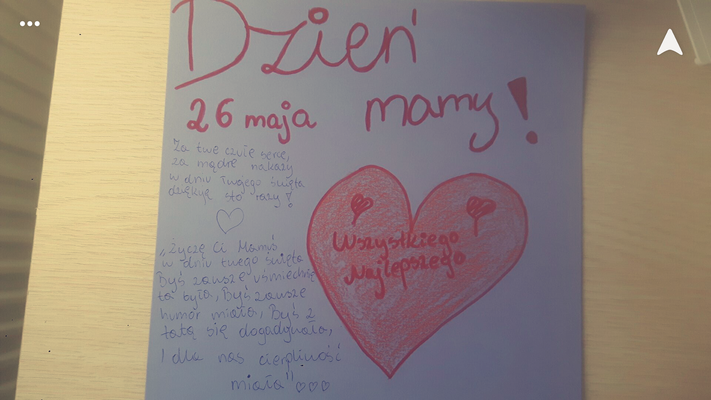 Dzień
26 maja mamy!
Za twe czułe serce,
za mądre nakazy
w dniu Twojego święta
dziękuję sto razy!
Wszystkiego
Najlepszego
"Życzę Ci Mamuś
w dniu twego święta
Byś zawsze uśmiechnię
ta była, Byś zawsze
humor miała, Byś z
tatą się dogadywała,
I dla nas cierpliwość
miała"